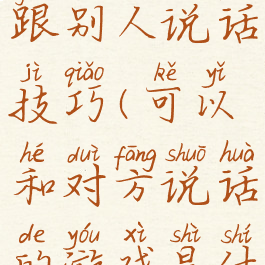 跟别人说话
jì qiǎo kě yǐ
技巧(可以
hé duì fāng shuō huà
和对方说话
de yóu xì shì shí
的游戏是什